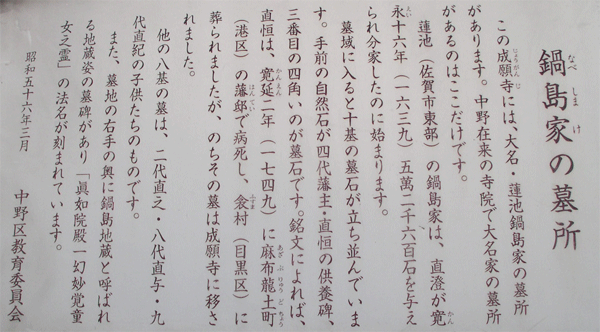 鍋島家の墓所
この成願寺には、大名・蓮池鍋島家の墓所
があります。中野在来の寺院で大名家の墓所
があるのはここだけです。
蓮池（佐賀市東部）の鍋島家は、直澄が寛
永十六年（一六三九）五萬二千六百石を与え
られ分家したのに始まります。
墓域に入ると十基の墓石が立ち並んでいま
す。手前の自然石が四代藩主・直恒の供養碑、
三番目の四角いのが墓石です。銘文によれば、
直恒は、寛延二年（一七四九）に麻布龍土町
（港区）の藩邸で病死し、衾村（目黒区）に
葬られましたが、のちその墓は成願寺に移さ
れました。
他の八基の墓は、二代直之・八代直与・九
代直紀の子供たちのものです。
また、墓地の右手の奥に鍋島地蔵と呼ばれ
る地蔵姿の墓碑があり「眞如院殿一幻妙覚童
女之霊」の法名が刻まれています。
昭和五十六年三月
中野区教育委員会